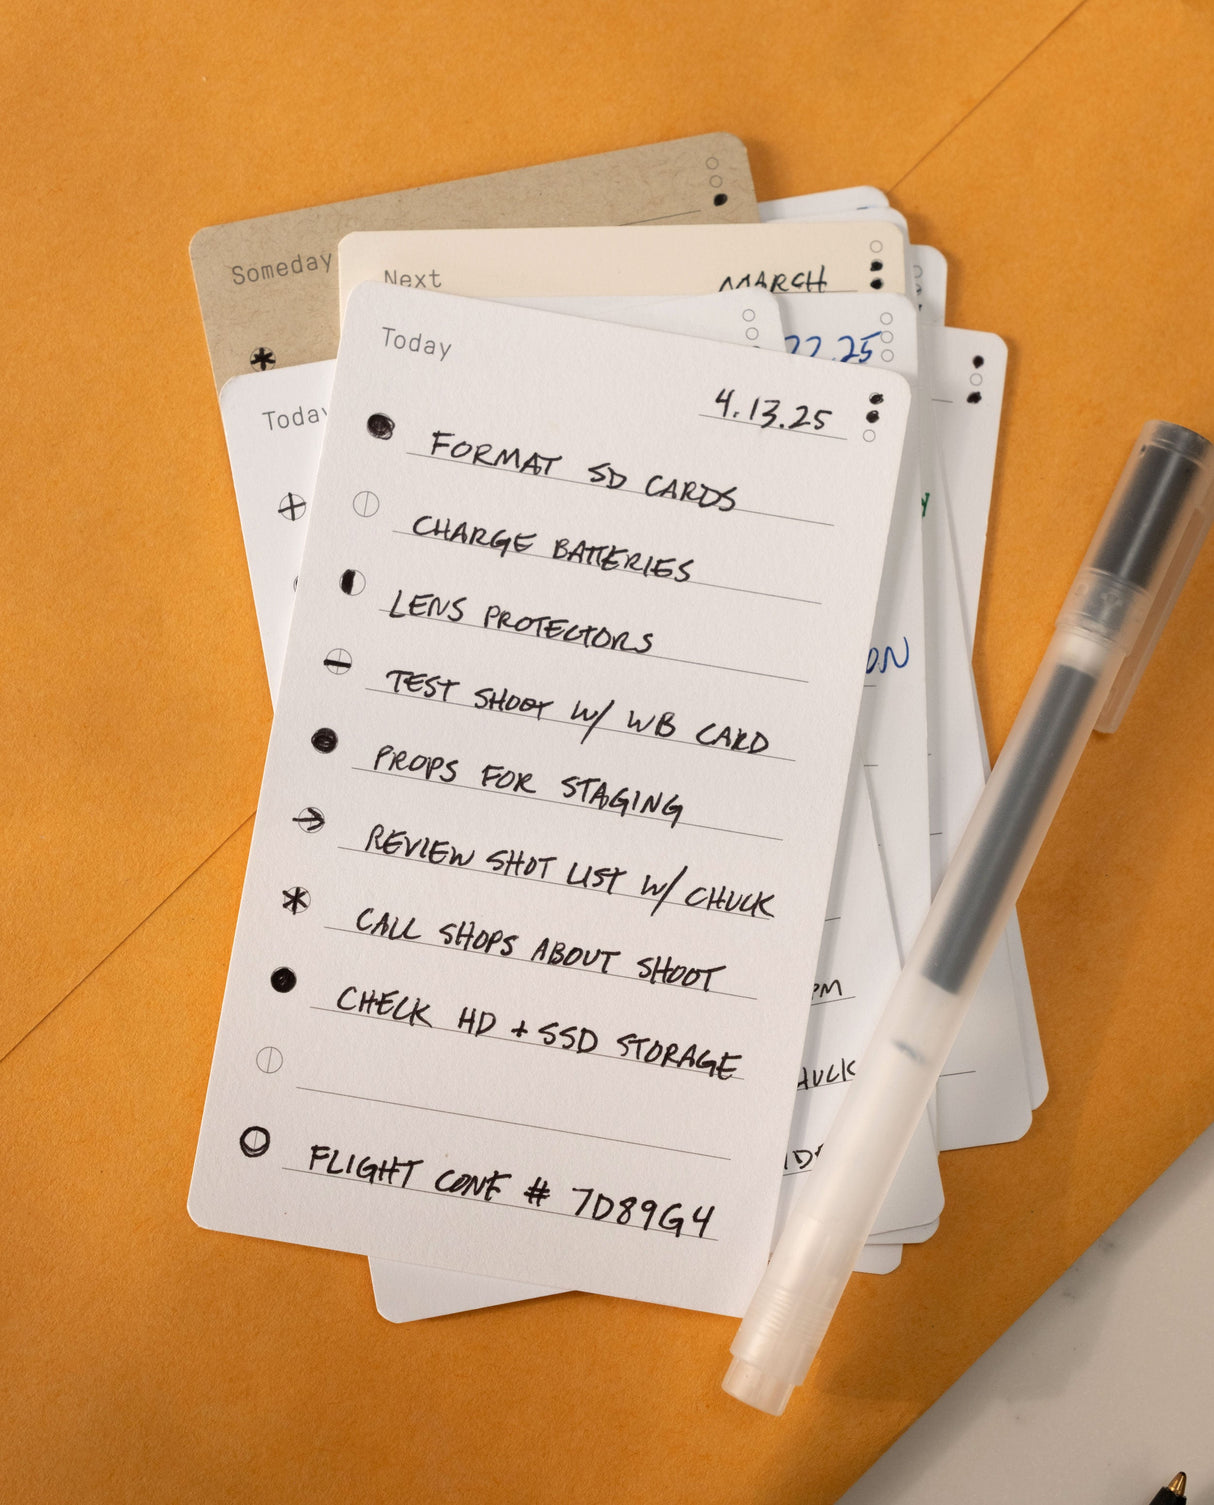 Someday
Next
MARCH
Today
22.25
Today
4.13.25
FORMAT SD CARDS
CHARGE BATTERIES
LENS PROTECTORS
TEST SHOOT W/ WB CARD
PROPS FOR STAGING
REVIEW SHOT LIST W/ CHUCK
CALL SHOPS ABOUT SHOOT
CHECK HD + SSD STORAGE
PM
FLIGHT CONF # 7D89G4